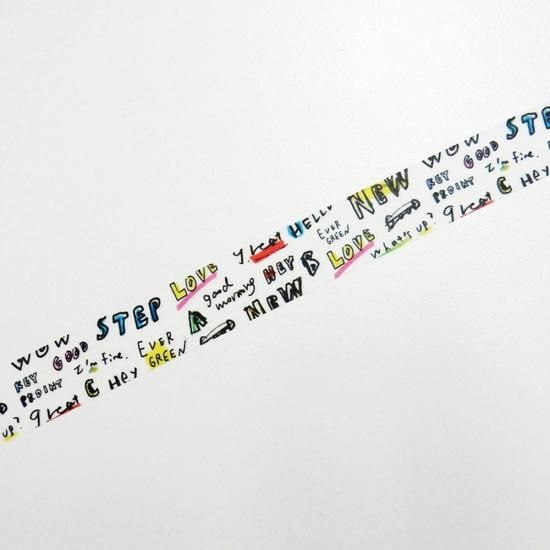 WOW STEP LOVE great HELLO NEW WOW STE
HEY GOOD I'm fine. EVER GREEN A good morning HEY B EVER GREEN LOVE HEY GOOD I'm fine.
POINT great C Hey NEW what's up? great POINT C Hey
up?